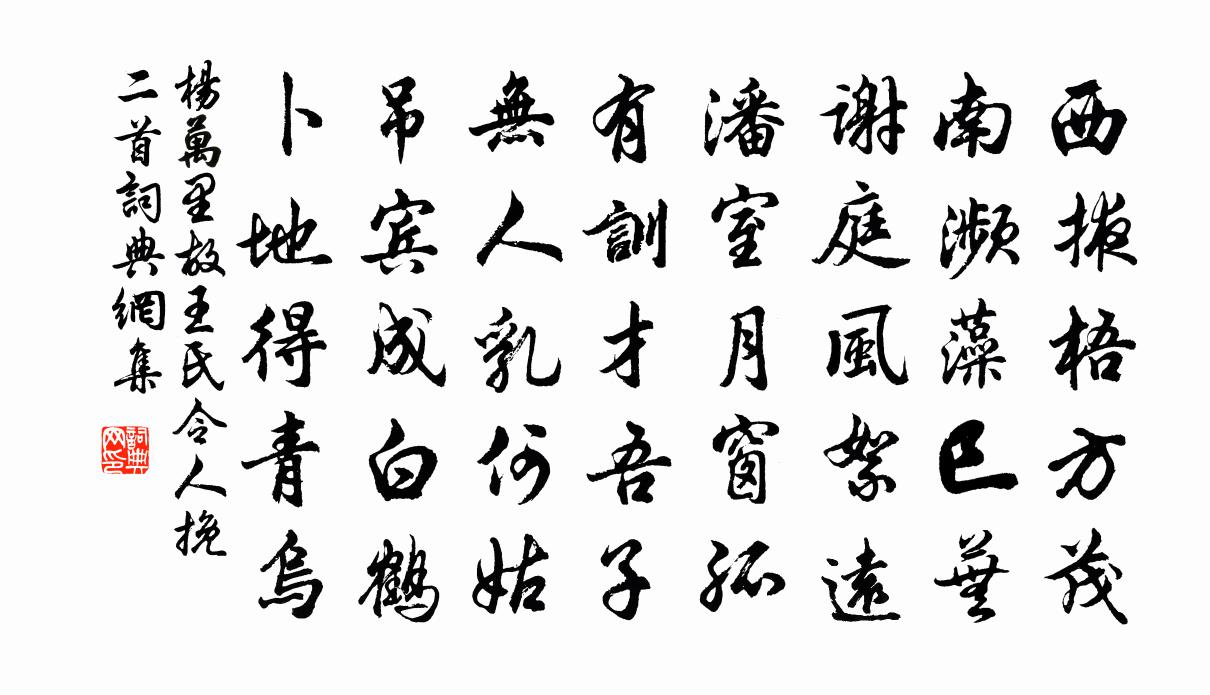 西掖梧方茂
南瀕藻已蕪
謝庭風絮遠
潘室月窗孤
有訓才吾子
無人乳何姑
吊賓成白鶴
卜地得青烏
楊萬里故王氏令人挽
二首詞典網集
詞典
网印